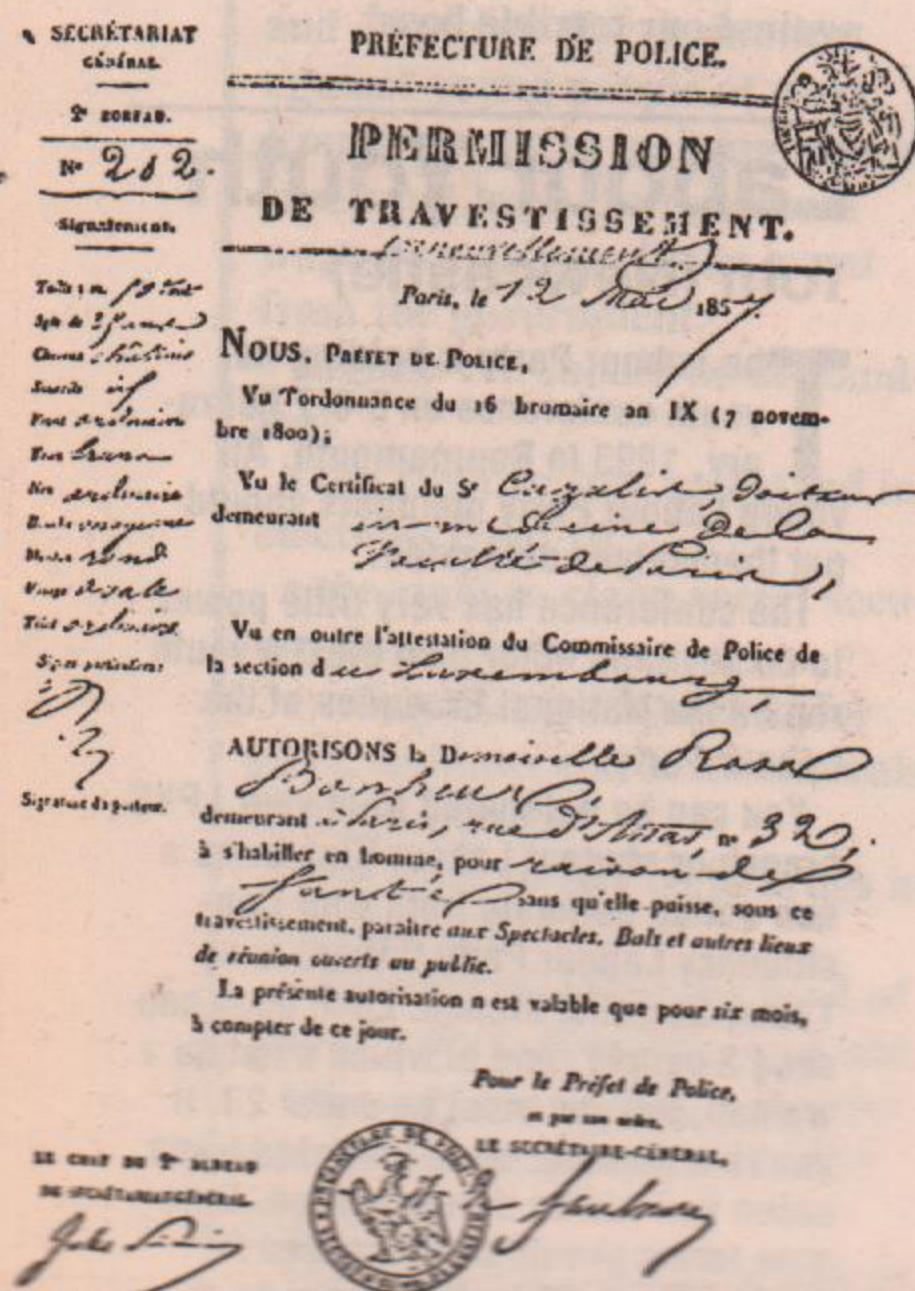 SECRÉTARIAT
GÉNÉRAL.
2e BUREAU.
No 202.
Signalement.
Taille
Age de
Cheveux châtains
Sourcils
Front ordinaire
Yeux
Nez ordinaire
Bouche moyenne
Menton rond
Visage ovale
Teint ordinaire
Signes particuliers
Signature du porteur.
PRÉFECTURE DE POLICE.
PERMISSION
DE TRAVESTISSEMENT.
renouvellement
Paris, le 12 Mai 1857.
NOUS, PRÉFET DE POLICE,
Vu l'ordonnance du 16 brumaire an IX (7 novem-
bre 1800);
Vu le Certificat du Sr Cazalis, docteur
demeurant en médecine de la
Faculté de Paris,
Vu en outre l'attestation du Commissaire de Police de
la section du Luxembourg,
AUTORISONS la Demoiselle Rosa
Bonheur,
demeurant à Paris, rue d'Assas, no 32,
à s'habiller en homme, pour raison de
santé sans qu'elle puisse, sous ce
travestissement, paraître aux Spectacles, Bals et autres lieux
de réunion ouverts au public.
La présente autorisation n'est valable que pour six mois,
à compter de ce jour.
Pour le Préfet de Police,
et par son ordre,
LE SECRÉTAIRE-GÉNÉRAL,
LE CHEF DU 2e BUREAU
DU SECRÉTARIAT GÉNÉRAL.